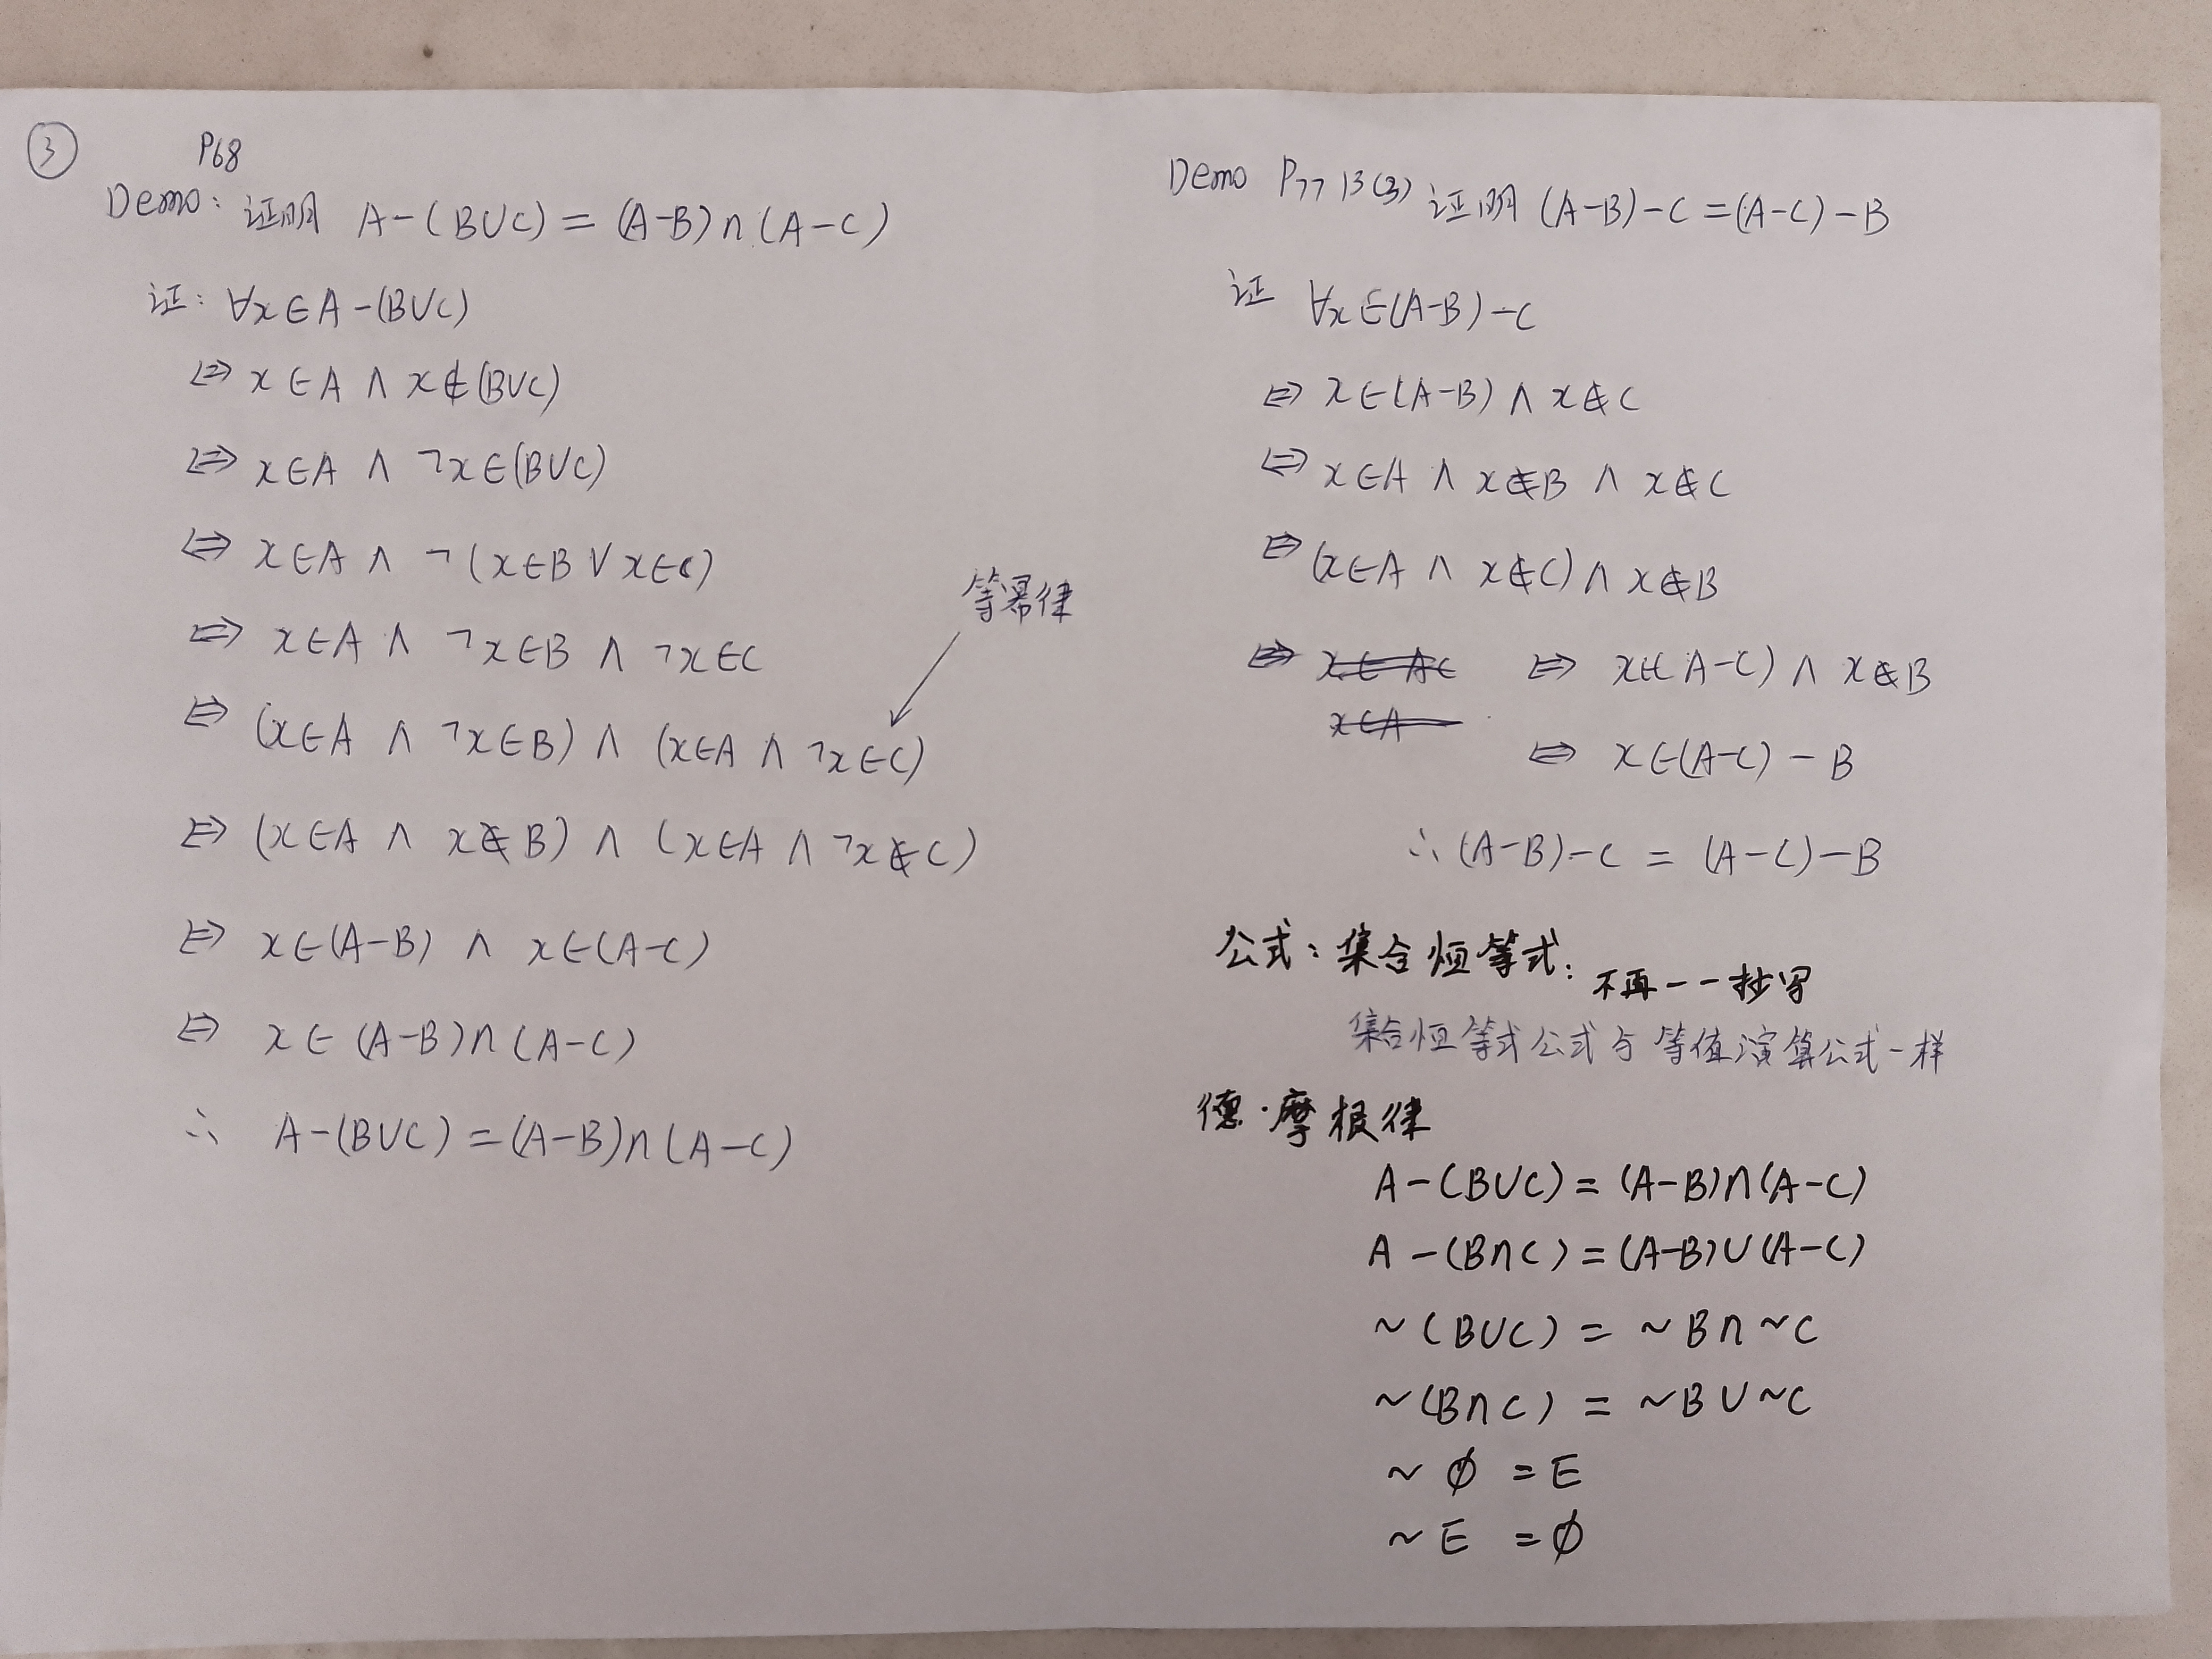 ③
P68
Demo: 证明 A-(B∪C) = (A-B)∩(A-C)
证: ∀x∈A-(B∪C)
⇔ x∈A ∧ x∉(B∪C)
⇔ x∈A ∧ ¬x∈(B∪C)
⇔ x∈A ∧ ¬(x∈B ∨ x∈C)
⇔ x∈A ∧ ¬x∈B ∧ ¬x∈C
等幂律
⇔ (x∈A ∧ ¬x∈B) ∧ (x∈A ∧ ¬x∈C)
⇔ (x∈A ∧ x∉B) ∧ (x∈A ∧ ¬x∉C)
⇔ x∈(A-B) ∧ x∈(A-C)
⇔ x∈(A-B)∩(A-C)
∴ A-(B∪C)=(A-B)∩(A-C)
Demo P77 13(3) 证明 (A-B)-C=(A-C)-B
证 ∀x∈(A-B)-C
⇔ x∈(A-B) ∧ x∉C
⇔ x∈A ∧ x∉B ∧ x∉C
⇔ (x∈A ∧ x∉C) ∧ x∉B
⇔ x∈(A-C) ∧ x∉B
⇔ x∈(A-C)-B
∴ (A-B)-C = (A-C)-B
公式: 集合恒等式: 不再一一抄写
集合恒等式公式与等值演算公式一样
德·摩根律
A-(B∪C)=(A-B)∩(A-C)
A-(B∩C)=(A-B)∪(A-C)
~(B∪C) = ~B∩~C
~(B∩C) = ~B∪~C
~∅ = E
~E = ∅